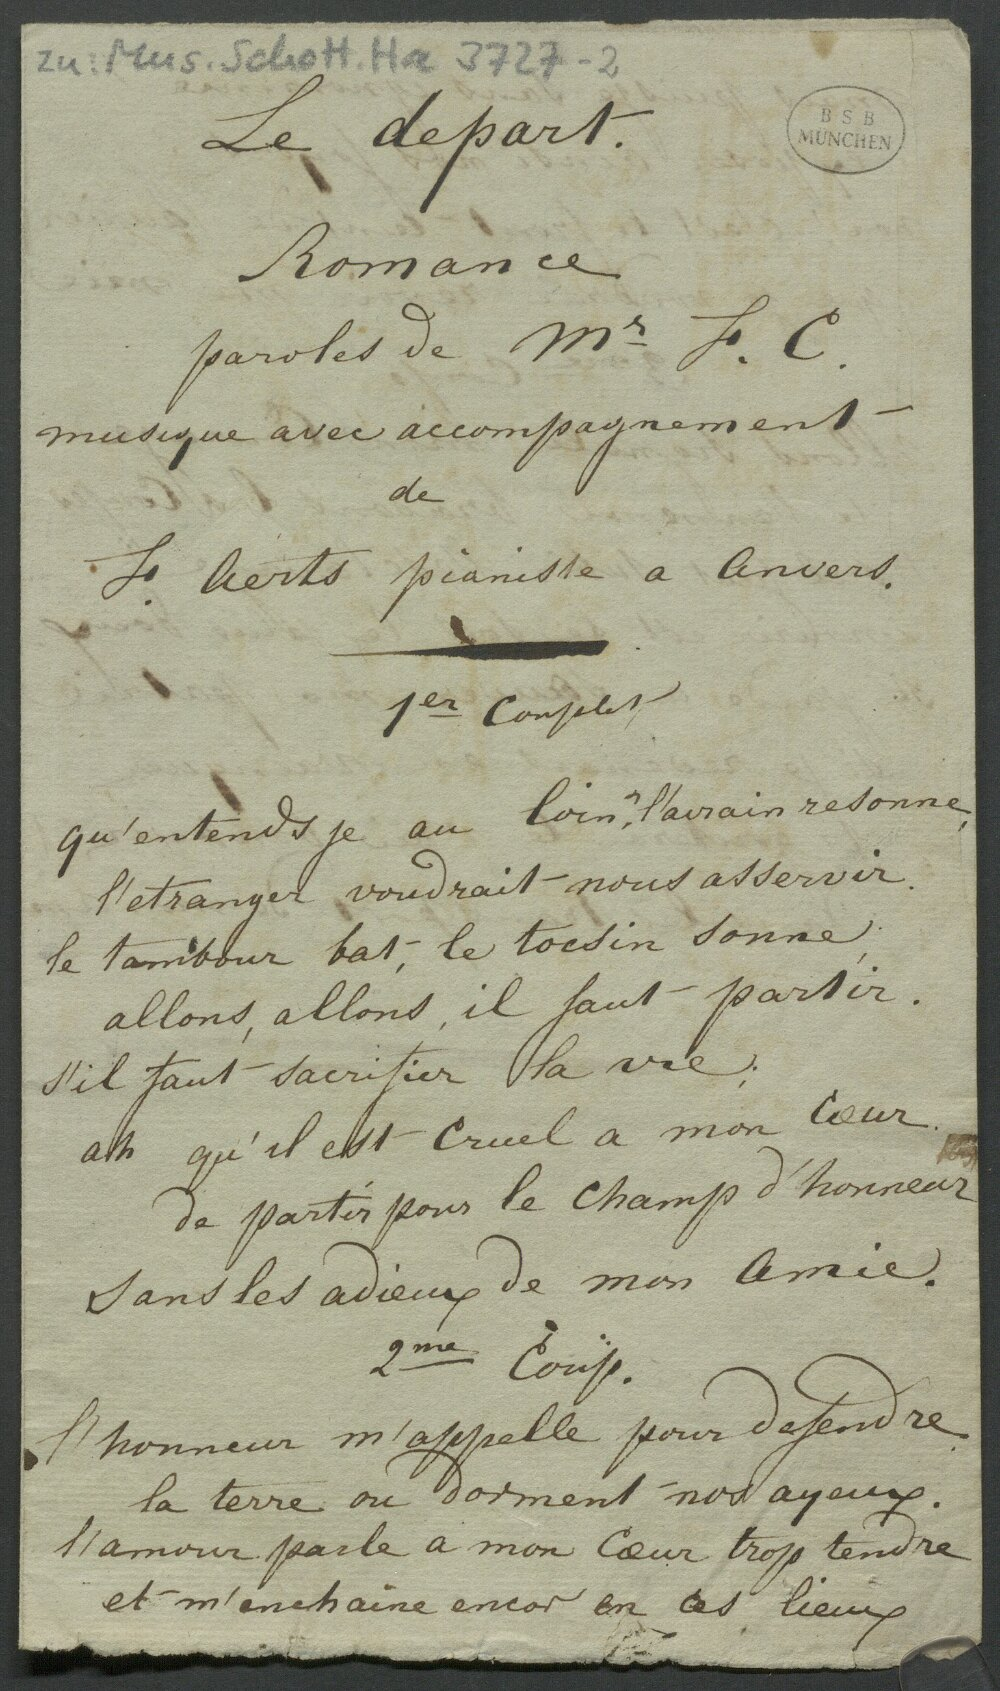 zu: Mus. Schott. Ha 3727-2
BSB
MÜNCHEN
Le depart.
Romance
paroles de Mr F. C.
musique avec accompagnement
de
F. Aerts pianiste a Anvers.
1er Couplet
qu'entends je au loin? l'airain resonne,
l'etranger voudrait nous asservir.
le tambour bat, le tocsin sonne,
allons, allons, il faut partir.
s'il faut sacrifier la vie;
ah qu'il est cruel a mon Cœur.
de partir pour le champ d'honneur
sans les adieux de mon Amie.
2me Coup.
l'honneur m'appelle pour defendre
la terre ou dorment nos ayeux.
l'amour parle a mon Cœur trop tendre
et m'enchaine encor en ces lieux